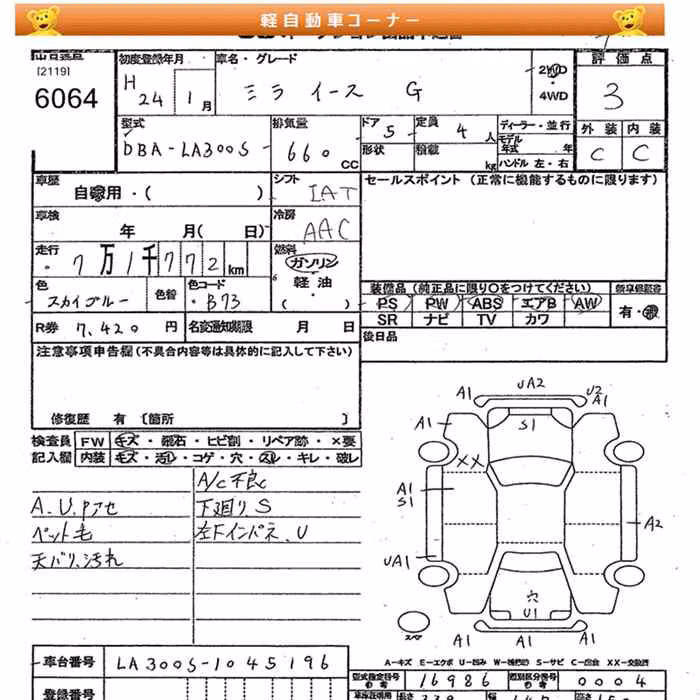 軽自動車コーナー
[2119]
6064
初度登録年月
H 24 1月
車名・グレード
ミラ イース G
2WD
・
4WD
評価点
3
外装 内装
C C
型式
DBA-LA300S
排気量
660 CC
ドア 5
形状
定員 4人
積載 kg
ディーラー・並行
モデル
年式 年
ハンドル 左・右
車歴
自家用・( )
シフト
IAT
セールスポイント (正常に機能するものに限ります)
車検
年 月( 日)
冷房
AAC
走行
7万1千772km
燃料
ガソリン
・
軽油
・
( )
色
スカイブルー
色替
色コード
B73
装備品 (純正品に限り○をつけてください)
PS PW ABS エアB AW
SR ナビ TV カワ
有・無
R券 7,420円
名変通知期限 月 日
後日品
注意事項申告欄(不具合内容等は具体的に記入して下さい)
修復歴 有 〔箇所 〕
検査員 FW キズ・飛石・ヒビ割・リペア跡・×要
記入欄 内装 キズ・汚レ・コゲ・穴・スレ・キレ・破レ
A/C不良
A.U.Pアセ
下廻り.S
ペット毛
左Fインパネ.U
天バリ.汚れ
A1
UA2
U2
A1
A1
S1
A1
XX
A1
S1
A2
UA1
穴
U1
スペア
A1
A1
A1
A-キズ E-エクボ U-凹み W-補修跡 S-サビ C-腐食 XX-交換済
車台番号
LA300S-1045196
型式指定番号
16986
類別区分番号
0004
登録番号